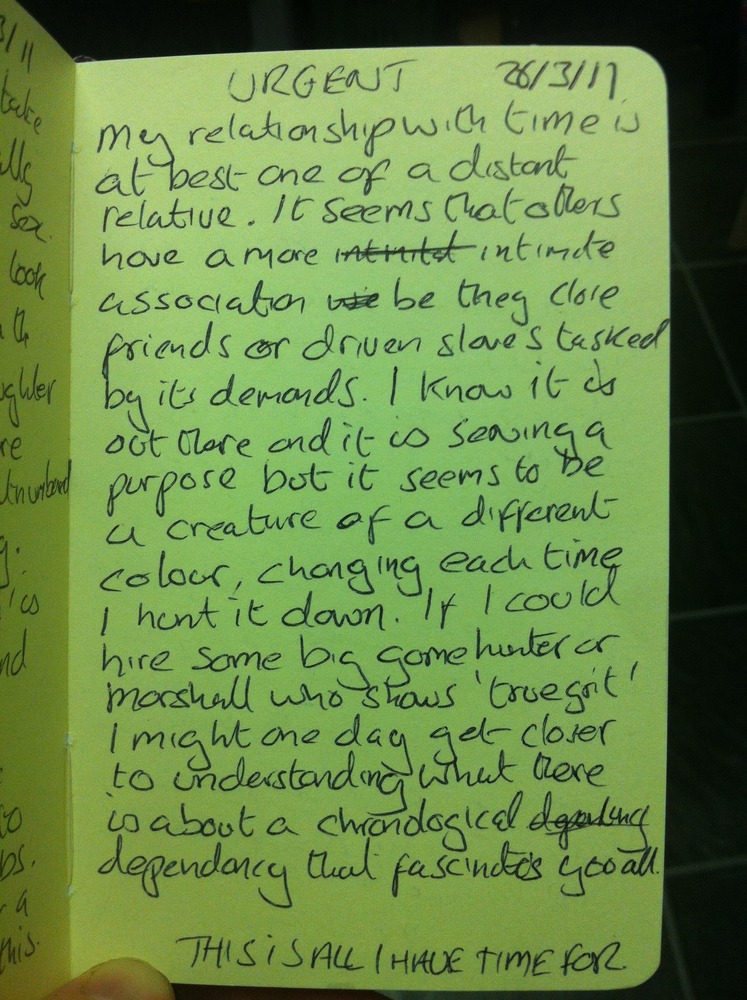 URGENT 26/3/11
My relationship with time is
at best one of a distant
relative. It seems that others
have a more intimate
association be they close
friends or driven slaves tasked
by its demands. I know it is
out there and it is serving a
purpose but it seems to be
a creature of a different
colour, changing each time
I hunt it down. If I could
hire some big game hunter or
Marshall who shows 'true grit'
I might one day get closer
to understanding what there
is about a chronological
dependancy that fascinates you all.
THIS IS ALL I HAVE TIME FOR.
take
sex.
look